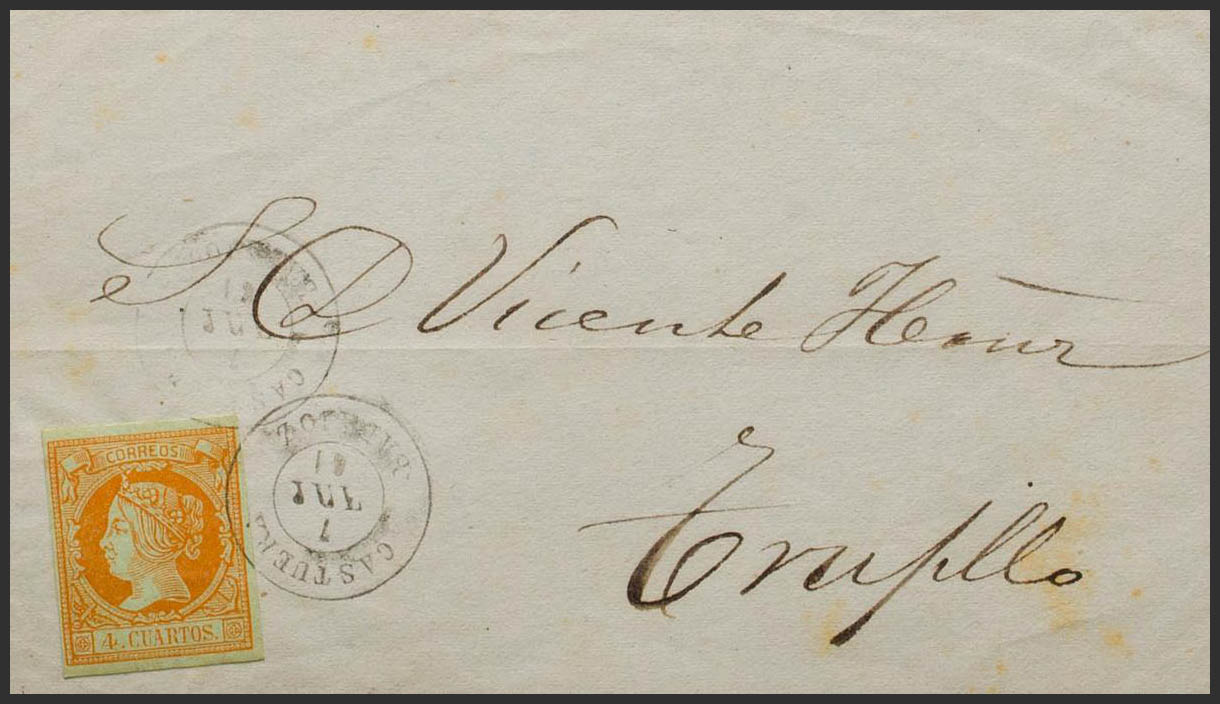 S D Vicente
Trujillo
CORREOS
4. CUARTOS.
CASTUERA
7
JUL
61
BADAJOZ